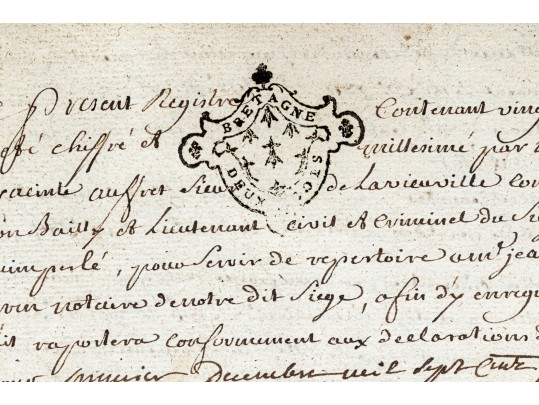 Present Registre Contenant
chiffré et millesime par
auffret de Lavieuville
Bailly et Lieutenant Civil et Criminel du
uimperlé, pour servir de repertoire a mr jea
notaire de notre dit Siege, afin d'y
raportera conformement aux declarations d
premier decembre mil sept cent
BRETAGNE
DEUX